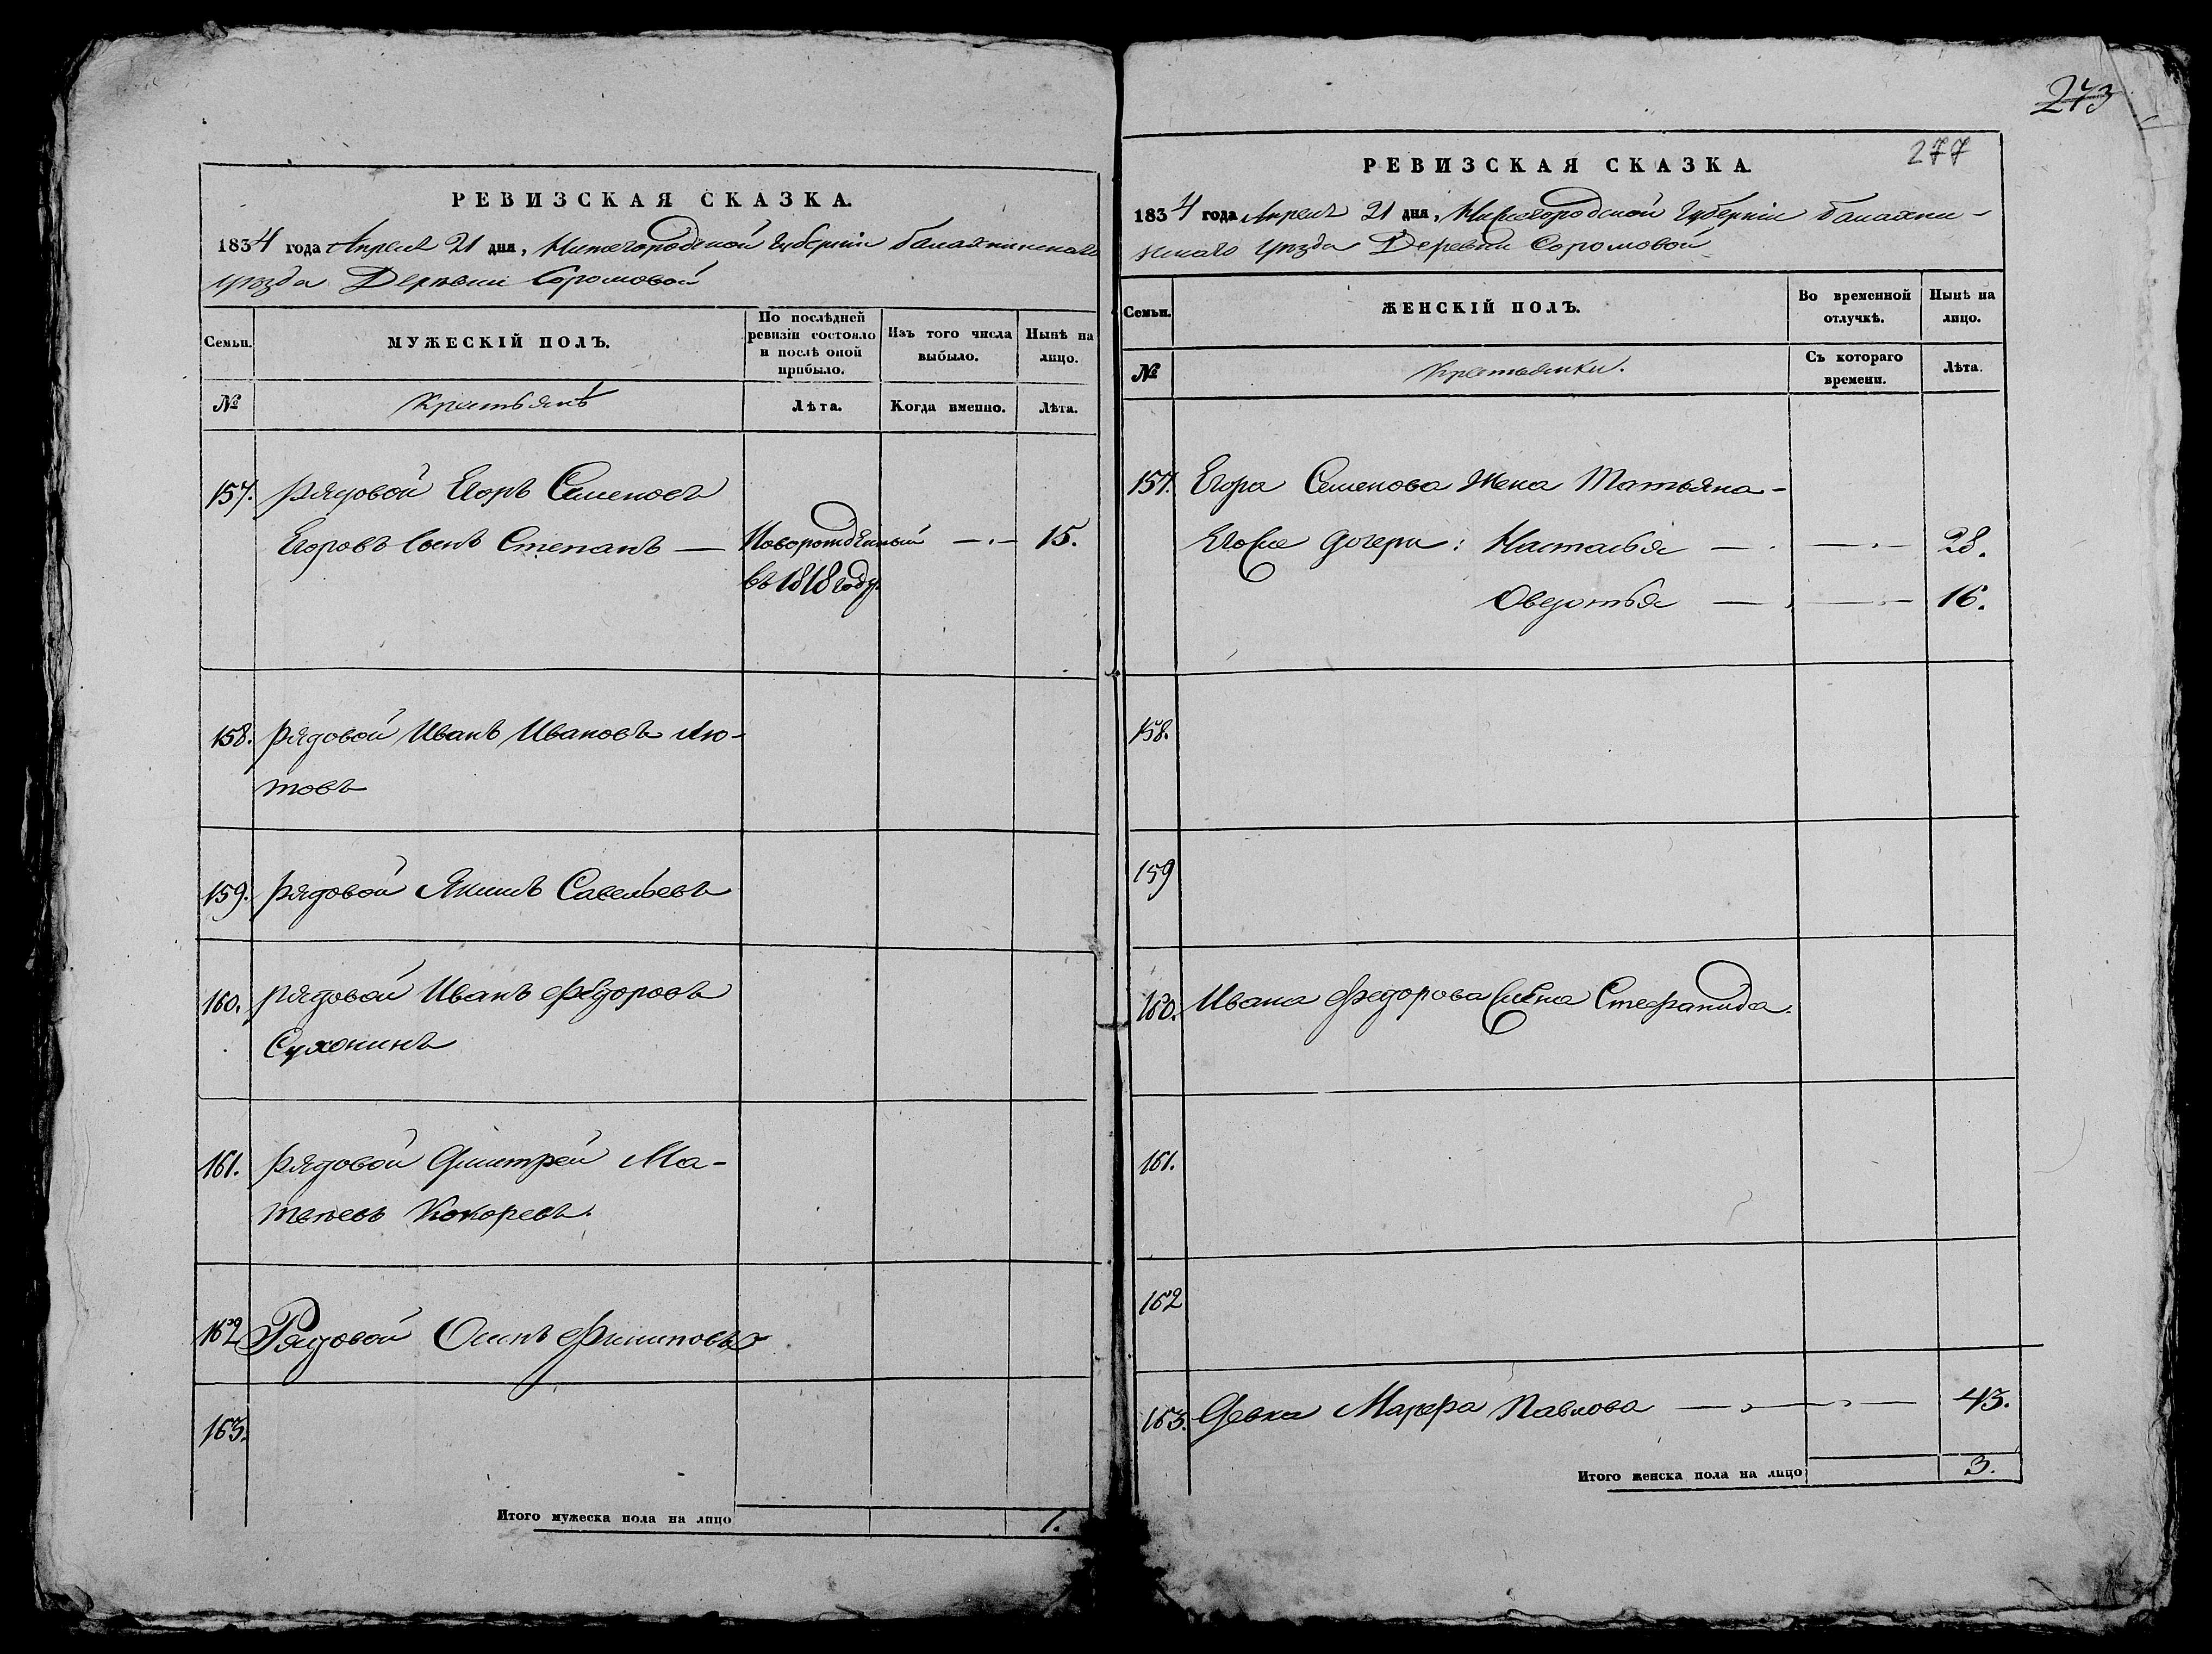 РЕВИЗСКАЯ СКАЗКА.
1834 года Апреля 21 дня, Нижегородской Губернiи Балахнинскаго
уѣзда Деревни Соромовой
Семьи.
МУЖЕСКIЙ ПОЛЪ.
По послѣдней ревизiи состояло и послѣ оной прибыло.
Изъ того числа выбыло.
Нынѣ на лицо.
№
Крестьянъ
Лѣта.
Когда именно.
Лѣта.
157. рядовой Егоръ Семеновъ
Егоровъ сынъ Степанъ — Новорожденный —·— 15.
въ 1818 году.
158. рядовой Иванъ Ивановъ Лю-
товъ
159. рядовой Якимъ Савельевъ
160. рядовой Иванъ Федоровъ
Сухонинъ
161. рядовой Дмитрей Ма-
твѣевъ Кокоревъ.
162 Рядовой Осипъ Филиповъ
163.
Итого мужеска пола на лицо 1.
273
277
РЕВИЗСКАЯ СКАЗКА.
1834 года Апреля 21 дня, Нижегородской Губернiи Балахни-
нскаго уѣзда Деревни Соромовой
Семьи.
ЖЕНСКIЙ ПОЛЪ.
Во временной отлучкѣ.
Нынѣ на лицо.
№
Крестьянки.
Съ котораго времени.
Лѣта.
157. Егора Семенова жена Татьяна-
Его же дочери: Наталья — · — · — 28.
Овдотья — · — · — 16.
158.
159
160. Ивана Федорова жена Стефанида.
161.
162
163. Девка Марфа Павлова — · — · — 43.
Итого женска пола на лицо 3.